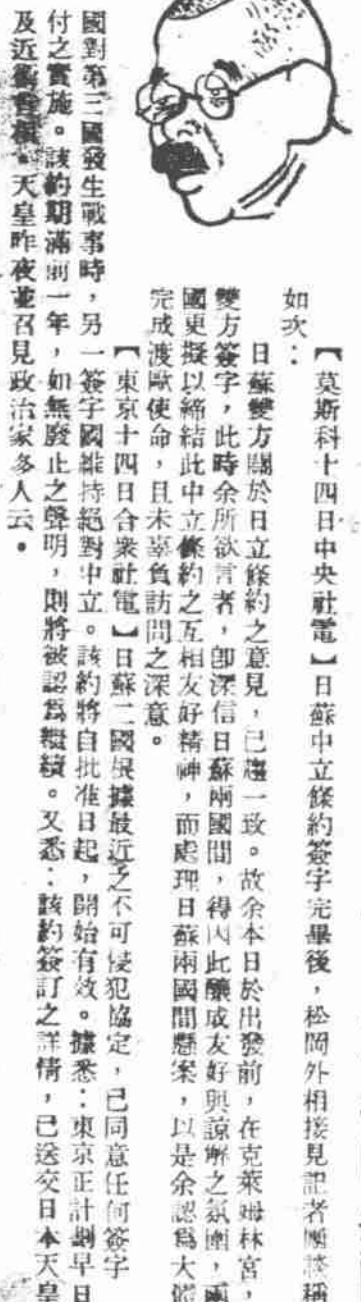 【莫斯科十四日中央社電】日蘇中立條約簽字完畢後，松岡外相接見記者團談稱
如次：
日蘇雙方關於日立條約之意見，已趨一致。故余本日於出發前，在克萊姆林宮，
雙方簽字，此時余所欲言者，卽深信日蘇兩國間，得因此釀成友好與諒解之氛圍，兩
國更擬以締結此中立條約之互相友好精神，而處理日蘇兩國間懸案，以是余認爲大體
完成渡歐使命，且未辜負訪問之深意。
【東京十四日合衆社電】日蘇二國根據最近之不可侵犯協定，已同意任何簽字
國對第三國發生戰事時，另一簽字國維持絕對中立。該約將自批准日起，開始有效。據悉：東京正計劃早日
付之實施。該約期滿前一年，如無廢止之聲明，則將被認爲繼續。又悉：該約簽訂之詳情，已送交日本天皇
及近衞首相。天皇昨夜並召見政治家多人云。